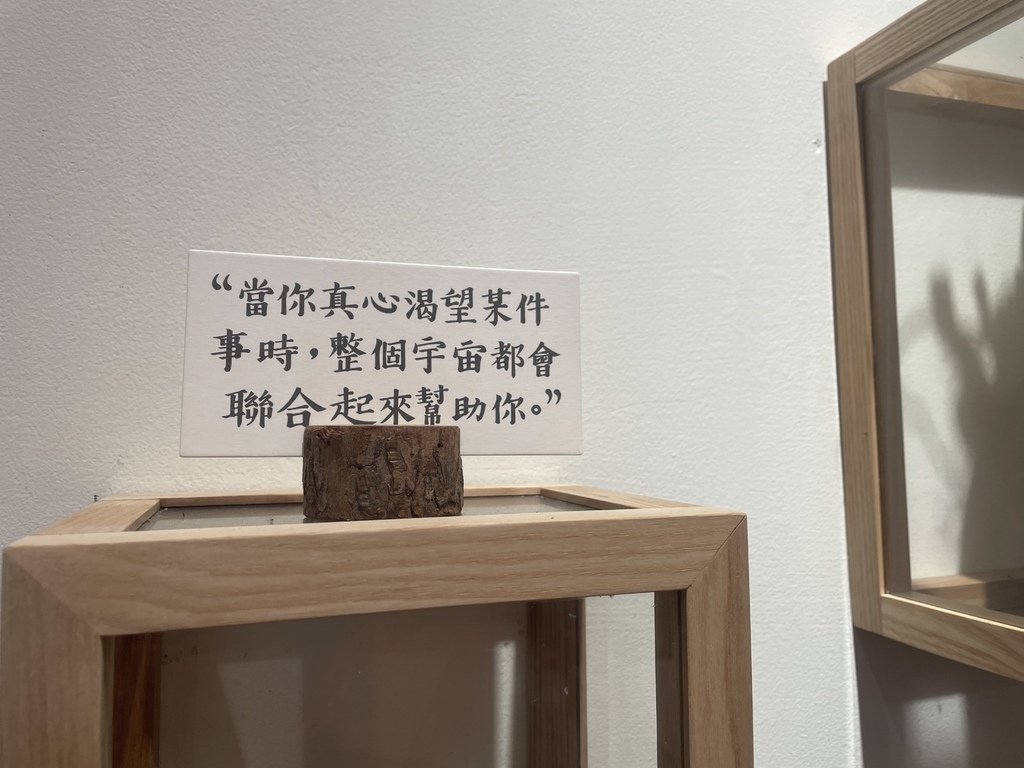 “當你真心渴望某件
事時，整個宇宙都會
聯合起來幫助你。”